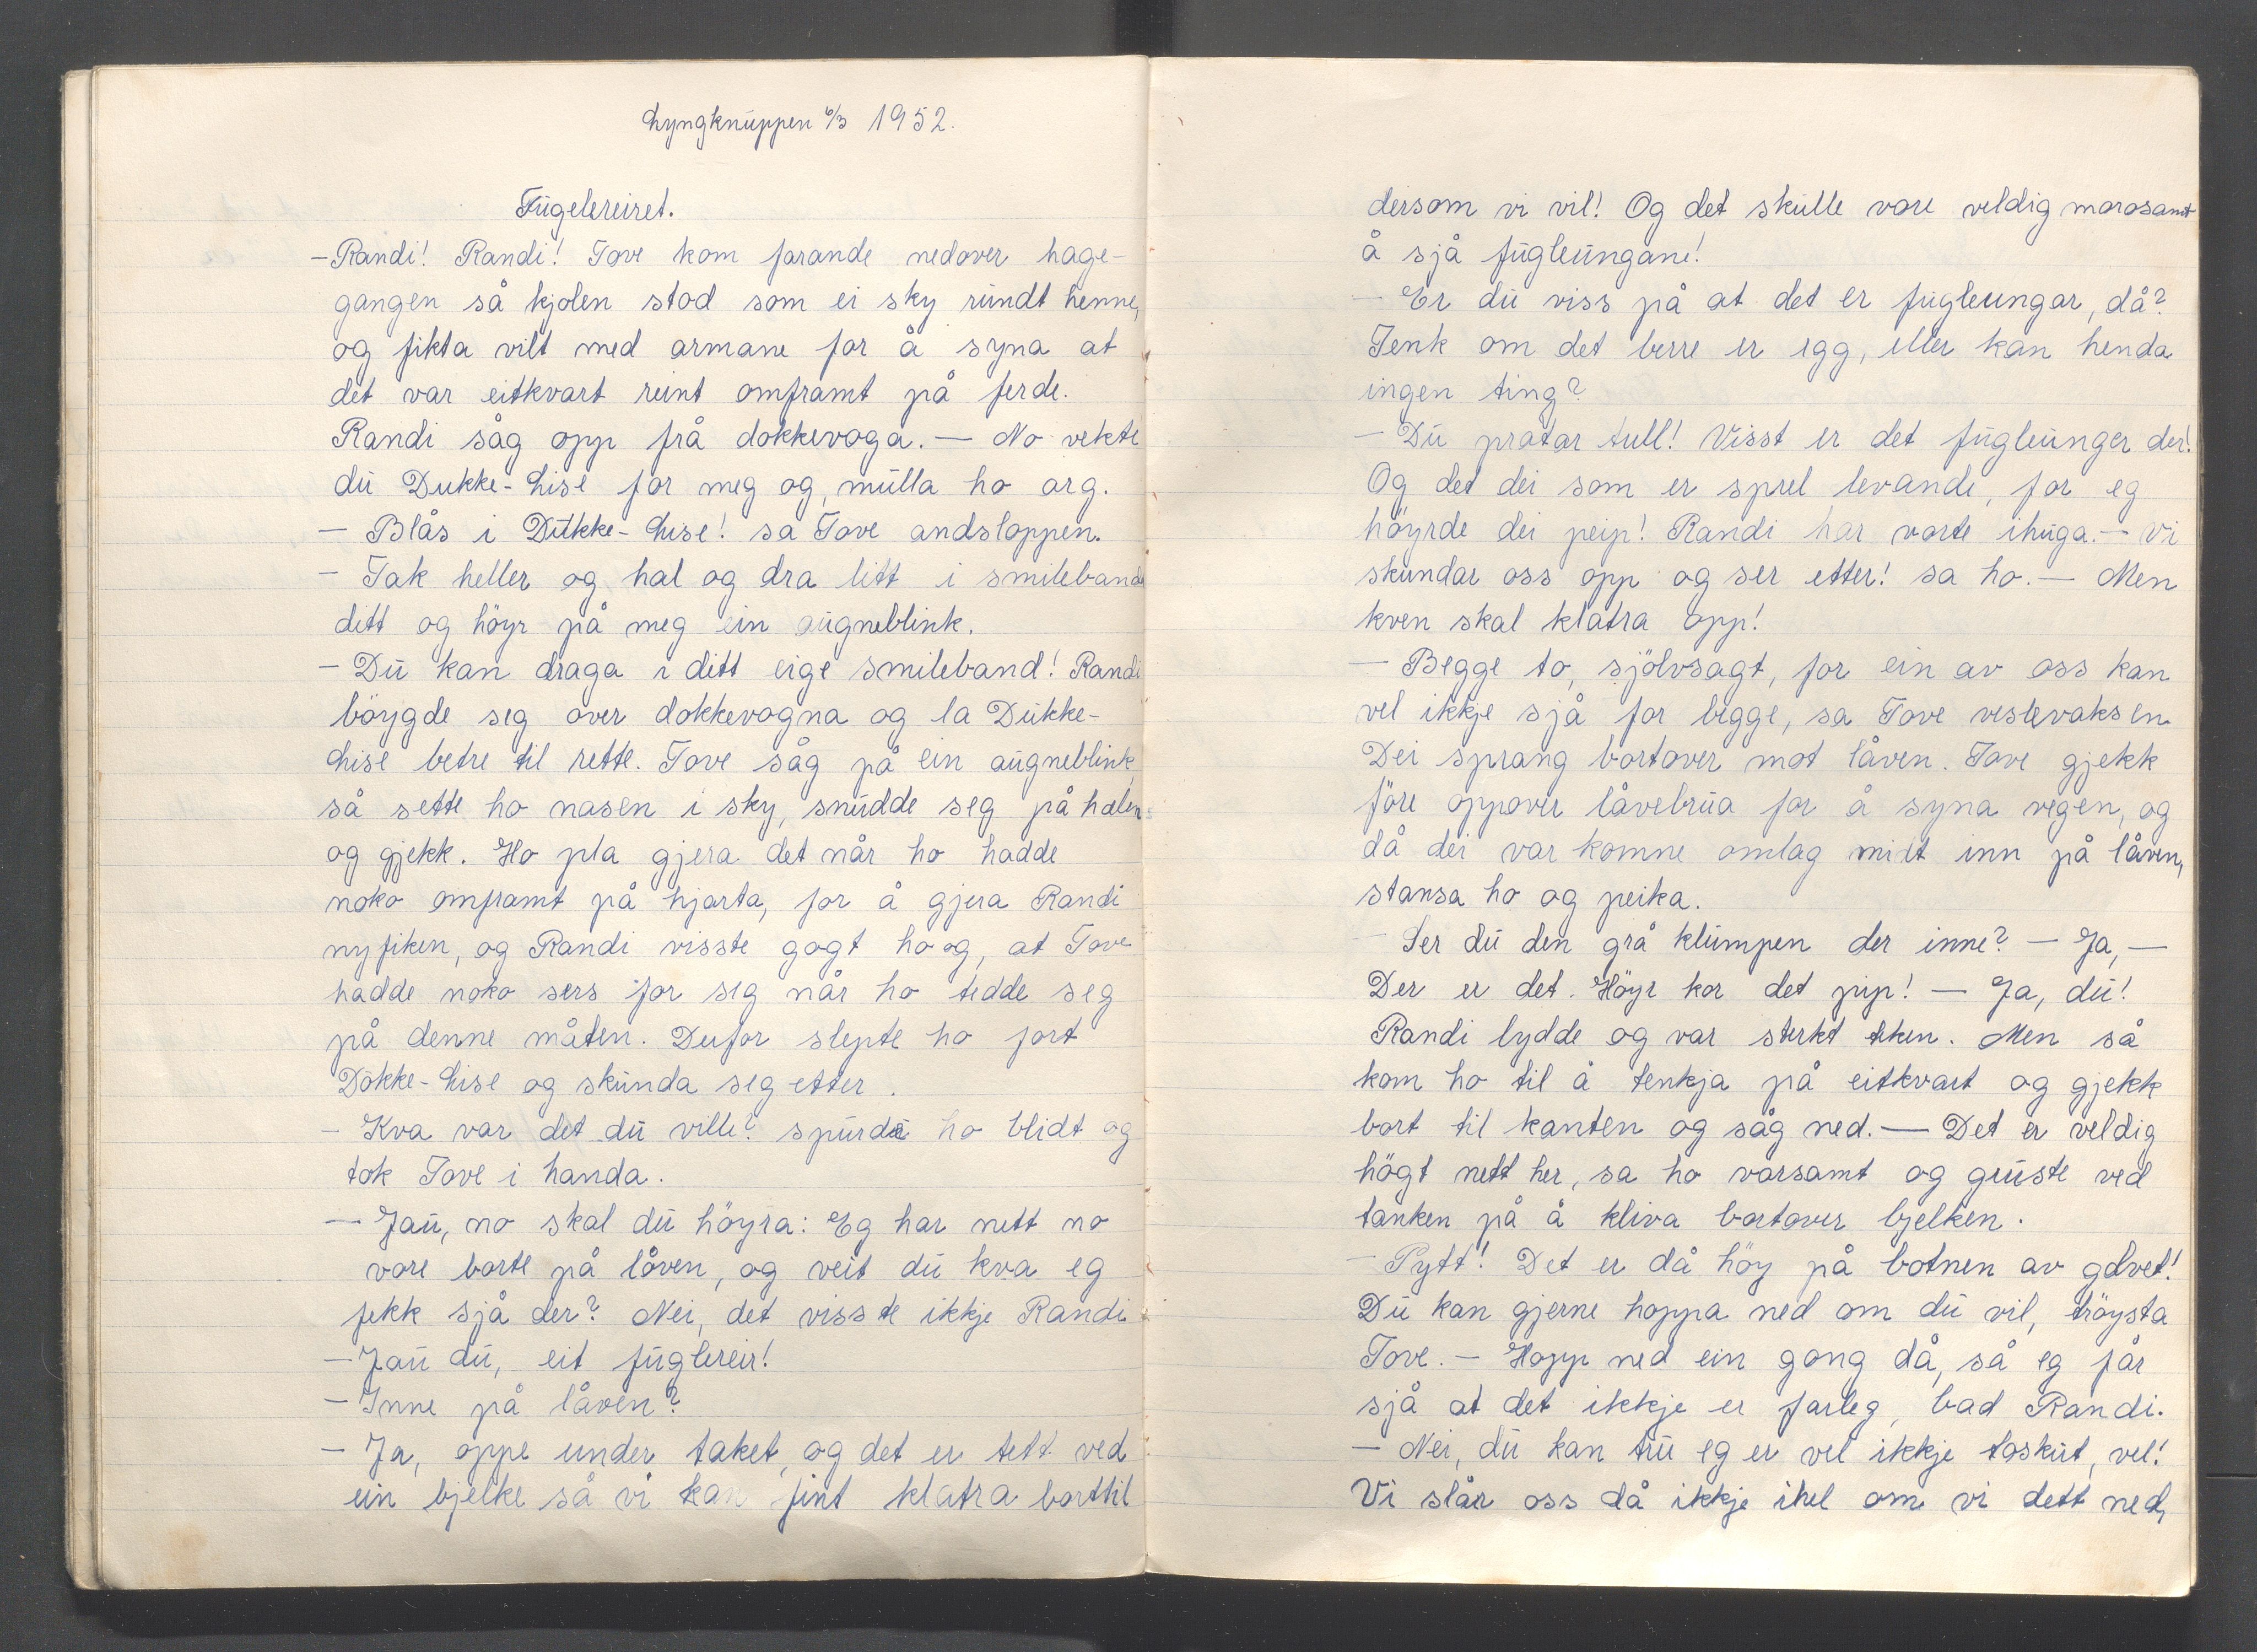 Lyngknuppen 6/3 1952.
Fugelereiret.
- Randi! Randi! Tove kom farande nedover hage-
gangen så kjolen stod som ei sky rundt henne,
og fikta vilt med armane for å syna at
det var eitkvart reint omframt på ferde.
Randi såg opp frå dokkevoga. — No vekte
du Dukke-Lise for meg og, mulla ho arg.
— Blås i Dukke-Lise! sa Tove andsloppen.
— Tak heller og hal og dra litt i smileband
ditt og höyr på meg ein augneblink.
- Du kan draga i ditt eige smileband! Randi
böygde seg over dokkevogna og la Dukke-
Lise betre til rette. Tove såg på ein augneblink,
så sette ho nasen i sky, snudde seg på hælen
og gjekk. Ho pla gjera det når ho hadde
noko omframt på hjarta, for å gjera Randi
nyfiken, og Randi visste gogt ho og, at Tove
hadde noko sers for seg når ho tedde seg
på denne måten. Derfor slepte ho fort
Dokke-Lise og skunda seg etter.
- Kva var det du ville? spurde ho blidt og
tok Tove i handa.
— Jau, no skal du höyra: Eg har nett no
vore borte på låven, og veit du kva eg
fekk sjå der? Nei, det visste ikkje Randi.
- Jau du, eit fuglereir!
- Inne på låven?
- Ja, oppe under taket, og det er tett ved
ein bjelke så vi kan fint klatra borttil
dersom vi vil! Og det skulle vore veldig morosamt
å sjå fugleungane!
— Er du viss på at det er fugleungar, då?
Tenk om det berre er egg, eller kan henda
ingen ting?
— Du pratar tull! Visst er det fugleunger der!
Og det dei som er sprel levande, for eg
höyrde dei peip! Randi har vorte ihuga. — Vi
skundar oss opp og ser etter! sa ho. — Men
kven skal klatra opp!
— Begge to, sjölvsagt, for ein av oss kan
vel ikkje sjå for begge, sa Tove veslevaksen.
Dei sprang bortover mot låven. Tove gjekk
före oppover låvebrua for å syna vegen, og
då dei var komne omlag midt inn på låven,
stansa ho og peika.
— Ser du den grå klumpen der inne? — Ja, —
Der er det. Höyr kor det pip! — Ja, du!
Randi lydde og var sterkt teken. Men så
kom ho til å tenkja på eitkvart og gjekk
bort til kanten og såg ned. — Det er veldig
högt nett her, sa ho varsamt og gruste ved
tanken på å kliva bortover bjelken.
— Pytt! Det er då höy på botnen av golvet!
Du kan gjerne hoppa ned om du vil, tröysta
Tove. — Hopp ned ein gong då, så eg får
sjå at det ikkje er farleg, bad Randi.
— Nei, du kan tru eg er vel ikkje toskut, vel!
Vi slår oss då ikkje ihel om vi dett ned,